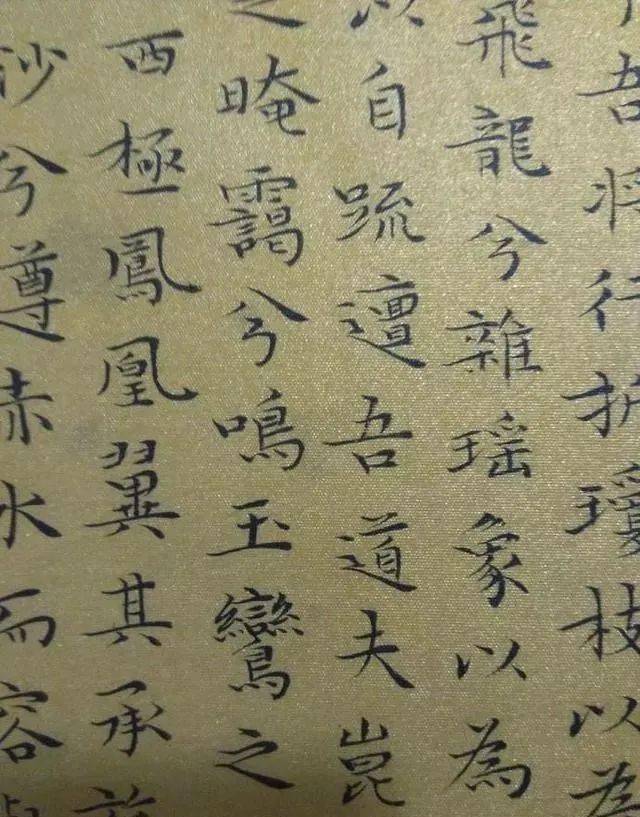 吾将行折瓊枝以為
飛龍兮雜瑶象以為
以自疏邅吾道夫崑
之晻靄兮鳴玉鸞之
西極鳳凰翼其承旂
沙兮遵赤水而容與